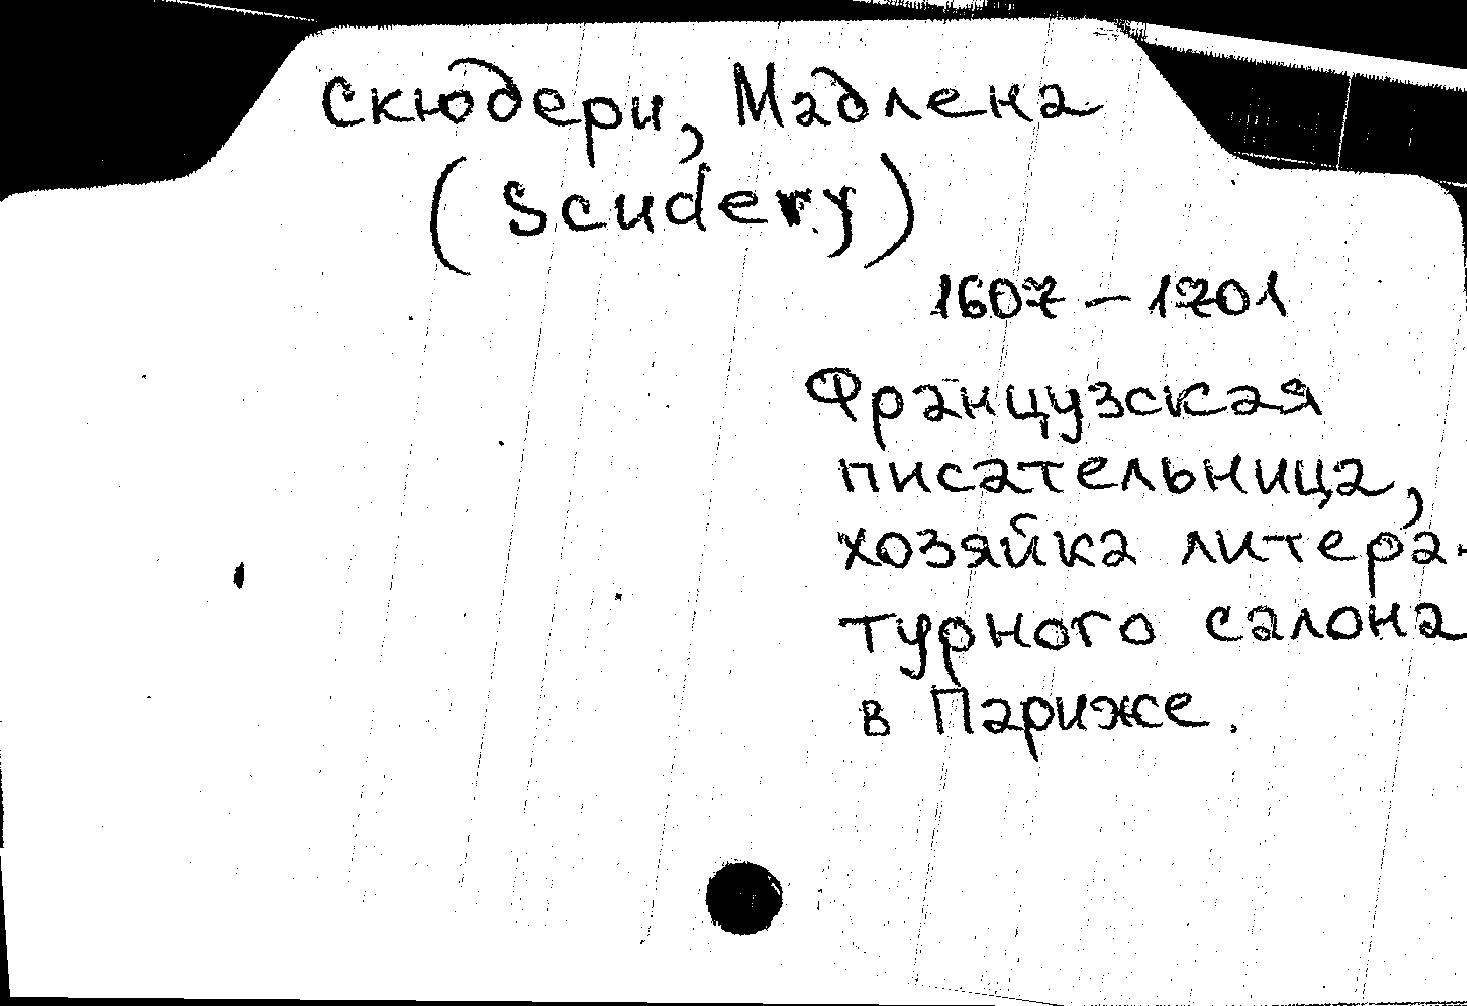 Скюдери, Мадлена
(Scudery)
1607 – 1701
Французская
писательница,
хозяйка литера-
турного салона
в Париже.